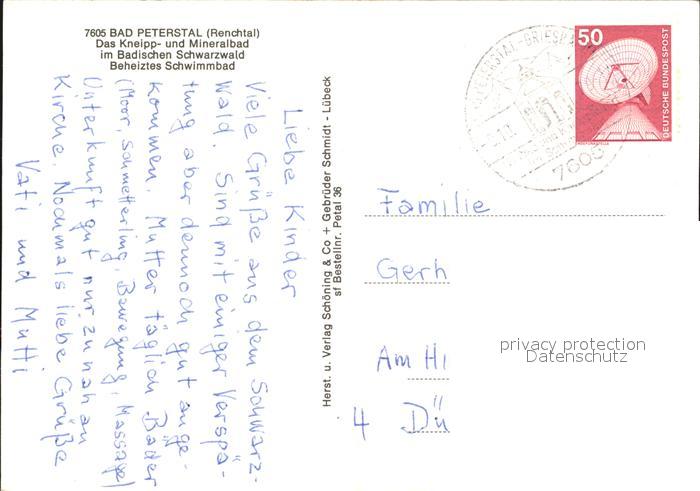 7605 BAD PETERSTAL (Renchtal)
Das Kneipp- und Mineralbad
im Badischen Schwarzwald
Beheiztes Schwimmbad
Liebe Kinder
Viele Grüße aus dem Schwarz-
wald. Sind mit einiger Verspä-
tung aber dennoch gut ange-
kommen. Mutter täglich Bäder
(Moor, Schmetterling, Bewegung, Massage)
Unterkunft gut nur zu nah an
Kirche. Nochmals liebe Grüße
Vati und Mutti
Herst. u. Verlag Schöning & Co + Gebrüder Schmidt - Lübeck
sf Bestellnr. Petal 36
PETERSTAL-GRIESB
7605
50
DEUTSCHE BUNDESPOST
Familie
Gerh
Am Hi
4 Dü
privacy protection
Datenschutz